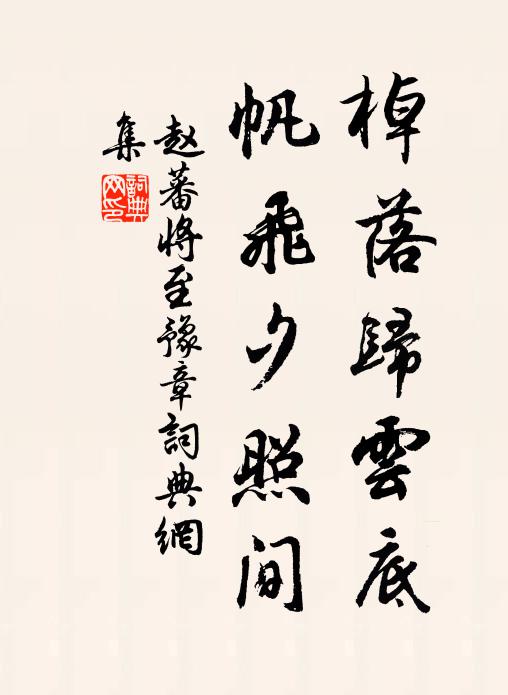 棹落歸雲底
帆飛夕照間
赵蕃將至豫章詞典網
集
詞典
网印